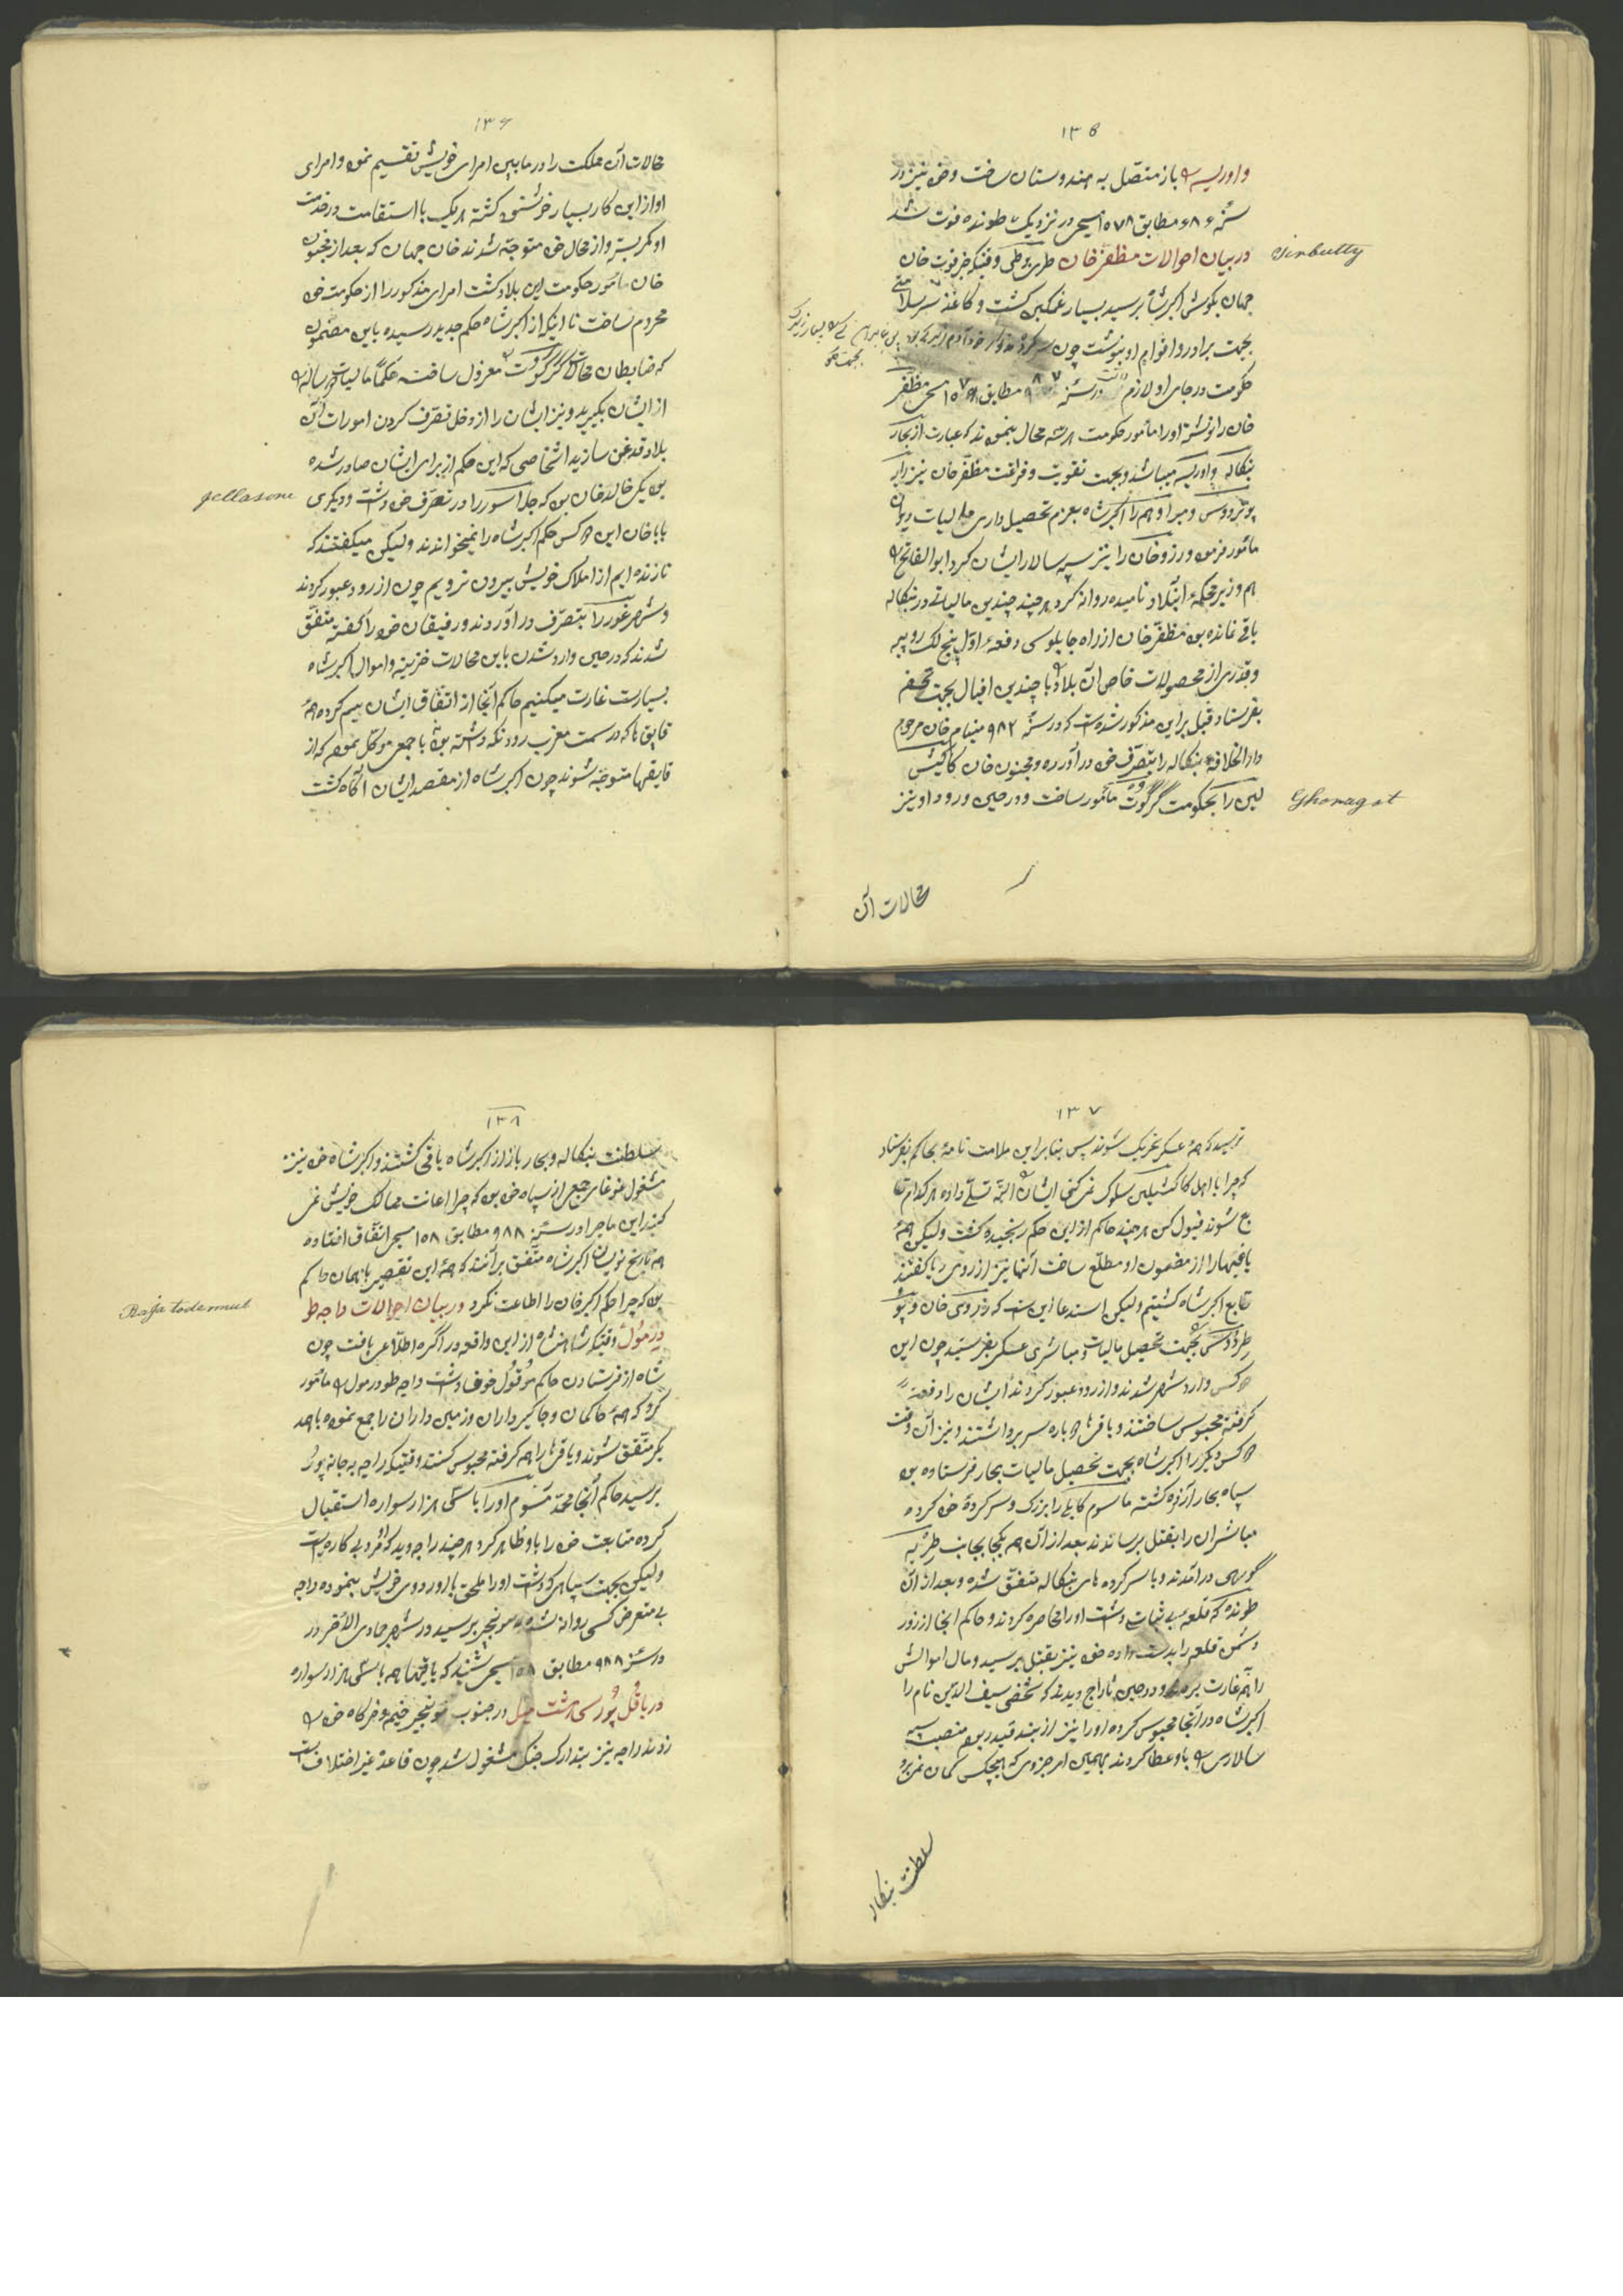 ۱۳۵
و اوریسه را باز متصل به هندوستان ساخت و خود نیز در
سنهٔ ۹۸۶ مطابق ۱۵۷۸ مسیحی در نزدیک طونده فوت شد
در بیان احوالات مظفر خان طربوطی وقتیکه خبر فوت خان
Tirbutty
جهان بگوش اکبرشاه برسید بسیار غمگین گشت و کاغذ سرسلامتی
بجهت برادر و اقوام او بنوشت چون
حکومت در جای او لازم در سنهٔ ۹۸۷ مطابق ۱۵۷۹ مسیحی مظفر
خان را نوشته او را مأمور حکومت هر سه محال بنمود که عبارت از بحار
بنکاله و اوریسه میباشد و بجهت تقویت و فراغت مظفر خان نیز رای
پوتردوس و میر ادهم را اکبرشاه بعزم تحصیل داری مالیات دیوان
مأمور فرمود و رزوخان را نیز سپه سالار ایشان کرد ابوالفاتح را
هم وزیر محکمهٔ ابتلاد نامیده روانه کرد هر چند چندین مالیاتی در بنکاله
باقی نمانده بود مظفر خان از راه چاپلوسی دفعهٔ اوّل پنج لک روپیه
و قدری از محصولات خاص آن بلاد را با چندین افیال بجهت تحفه
بفرستاد قبل بر این مذکور شده است که در سنهٔ ۹۸۲ منیام خان مرحوم
دارالخلافهٔ بنکاله را بتصرف خود در آورده و مجنون خان کاکیش
لین را بحکومت گرگوت مأمور ساخت و در حین ورود او نیز
Ghoragot
محالات آن
۱۳۶
محالات آن مملکت را در مابین امرای خویش تقسیم نمود و امرای
او از این کار بسیار خوشنود گشته هر یک با استقامت در خدمت
او کمر بسته و از محال خود متوجه شدند خان جهان که بعد از مجنون
خان مأمور حکومت این بلاد گشت امرای مذکور را از حکومت خود
محروم نساخت تا اینکه از اکبرشاه حکم جدید رسیده باین مضمون
که ضابطان محالات گرگوت معزول ساخته حکماً مالیات هر ساله را
از ایشان بگیرید و نیز ایشان را از دخل تصرف کردن امورات آن
بلاد قدغن سازید اشخاصی که این حکم از برای ایشان صادر شده
بود یکی خالدخان بود که جلاسور را در تصرف خود داشت و دیگری
Jellasore
باباخان این دو کس حکم اکبرشاه را نمیخواندند ولیکن میگفتند که
تا زنده ایم از املاک خویش بیرون نرویم چون از رود عبور کردند
و شهر غور را بتصرف در آوردند و رفیقان خود را گفته متفق
شدند که در حین وارد شدن باین محالات خزینه و اموال اکبرشاه
بسیارست غارت میکنیم حاکم آنجا از اتفاق ایشان بیم کرده همهٔ
قایق ها که در سمت مغرب رود نگه داشته بود با جمعی موکل نمود که از
قایقها متوجه شوند چون اکبرشاه از مقصد ایشان آگاه گشت
۱۳۷
ترسید که همهٔ عسکر شریک شوند پس بنابراین ملامت نامهٔ بحاکم بفرستاد
که چرا با اهل کاکشیلین سلوک نمی کنی ایشان را البته تسلّی داده هر کدام تا
بع شوند قبول کن هر چند حاکم از این حکم رنجیده گشت ولیکن همهٔ
یاغیها را از مضمون او مطلع ساخت آنها نیز از روی ریا گفتند
تابع اکبرشاه گشتیم ولیکن استدعا این است که رزوی خان و پو
طردوس را بجهت تحصیل مالیات و مباشری عسکر بفرستید چون این
دو کس وارد شهر شدند و از رود عبور کردند ایشان را دفعةً
گرفته محبوس ساختند و یاغی ها دوباره سر برداشتند و نیز آن وقت
دو کس دیگر را اکبرشاه بجهت تحصیل مالیات بحار فرستاده بود
سپاه بحار آزرده گشته ماسوم کابلی را بزرگ و سرکردهٔ خود کرده
مباشران را بقتل برساندند بعد از آن همه یکجا بجانب طریه
گوبهی در آمدند و با سرکرده های بنکاله متفق شده و بعد از آن
طونده که قلعهٔ بی ثبات داشت او را محاصره کردند و حاکم آنجا از زور
دشمن قلعه را بدست داده خود نیز بقتل برسید و مال اموالش
را همه غارت بردند و در حین تاراج دیدند که شخصی سیف الدین نام را
اکبرشاه در آنجا محبوس کرده او را نیز از بند قید رهانده منصب سپه
سالاری را باو عطا کردند بهمین امر جزوی که هیچکس گمان نمی برد
سلطنت بنکاله
۱۳۸
سلطنت بنکاله و بحار باز از اکبرشاه باقی گشتند و اکبرشاه خود نیز
مشغول غوغای جمعی از سپاه خود بود که چرا اعانت ممالک خویش نمی
کنید این ماجرا در سنهٔ ۹۸۸ مطابق ۱۵۸ مسیحی اتفاق افتاده
همه تاریخ نویسان اکبرشاه متفق برآنند که همهٔ این تقصیر با همان حاکم
بود که چرا حکم اکبر خان را اطاعت نکرد در بیان احوالات راجه طو
Raja todermul
درمول وقتیکه شاهنشاه از این واقعه در آگره اطلاعی یافت چون
شاه از فرستادن حاکم موقول خوف داشت راجه طودرمول را مأمور
کرد که همهٔ حاکمان و جاگیرداران و زمین داران را جمع نموده با همد
یگر متفق شوند و یاغی ها را هم گرفته محبوس کنند وقتیکه راجه به جانه پور
برسید حاکم آنجا محمد مسوم او را با سی هزار سواره استقبال
کرده متابعت خود را باو ظاهر کرد هر چند راجه دید که او مرد بی کاره است
ولیکن بجهت سپاهی که داشت او را ملحق با اوردوی خویش بنموده راجه
بی متعرض کسی روانه شده به مونجیر برسید در شهر جمادی الآخر در
در سنهٔ ۹۸۸ مطابق ۱۵۸ مسیحی شنید که یاغیها هم با سی هزار سواره
در باقل پور سی هشت میل در جنوب مونجیر خیمه و خرگاه خود را
زدند راجه نیز بتدارک جنگ مشغول شد چون قاعدهٔ غیر اختلاف است